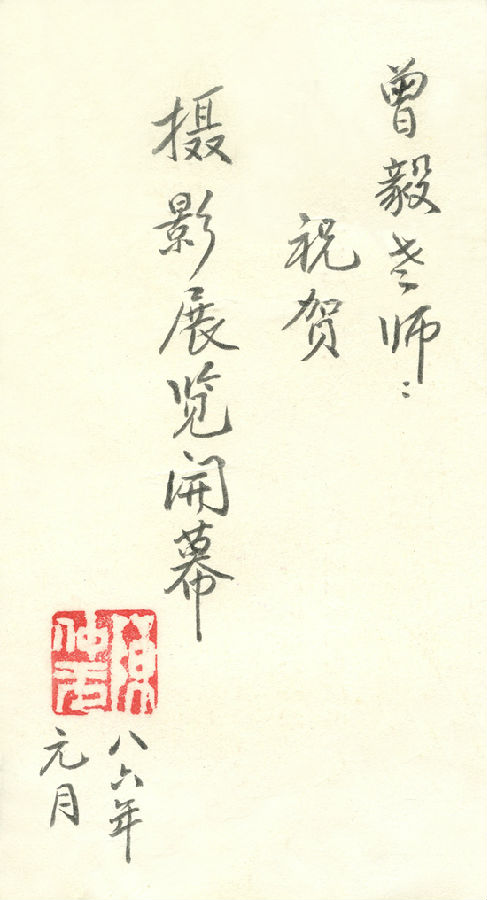 曾毅老师：
祝贺
摄影展览開幕
八六年
元月